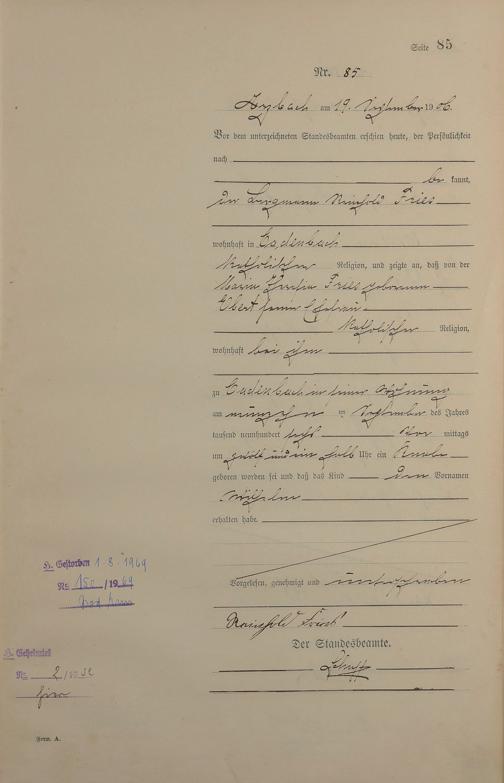 Seite 85
Nr. 85
am 19. September 1906.
Vor dem unterzeichneten Standesbeamten erschien heute, der Persönlichkeit
nach
be kannt,
der Bergmann Reinhold Fries
wohnhaft in
katholischer Religion, und zeigte an, daß von der
Maria Fries geborenen
Ebert seiner Ehefrau
katholischer Religion,
wohnhaft bei ihm
zu in seiner Wohnung
am ten September des Jahres
tausend neunhundert sechs Vor mittags
um zwölf und ein halb Uhr ein Knabe
geboren worden sei und daß das Kind den Vornamen
Wilhelm
erhalten habe.
Vorgelesen, genehmigt und unterschrieben
Reinhold Fries
Der Standesbeamte.
H. Gestorben 1.8.1969
Nr. 150/1969
H. Geheiratet
Nr. 2/1932
Form. A.